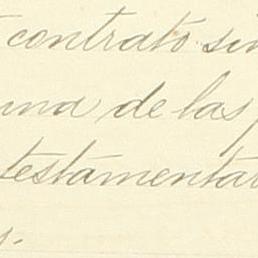 contrato sin
una de las
testamentar
s.